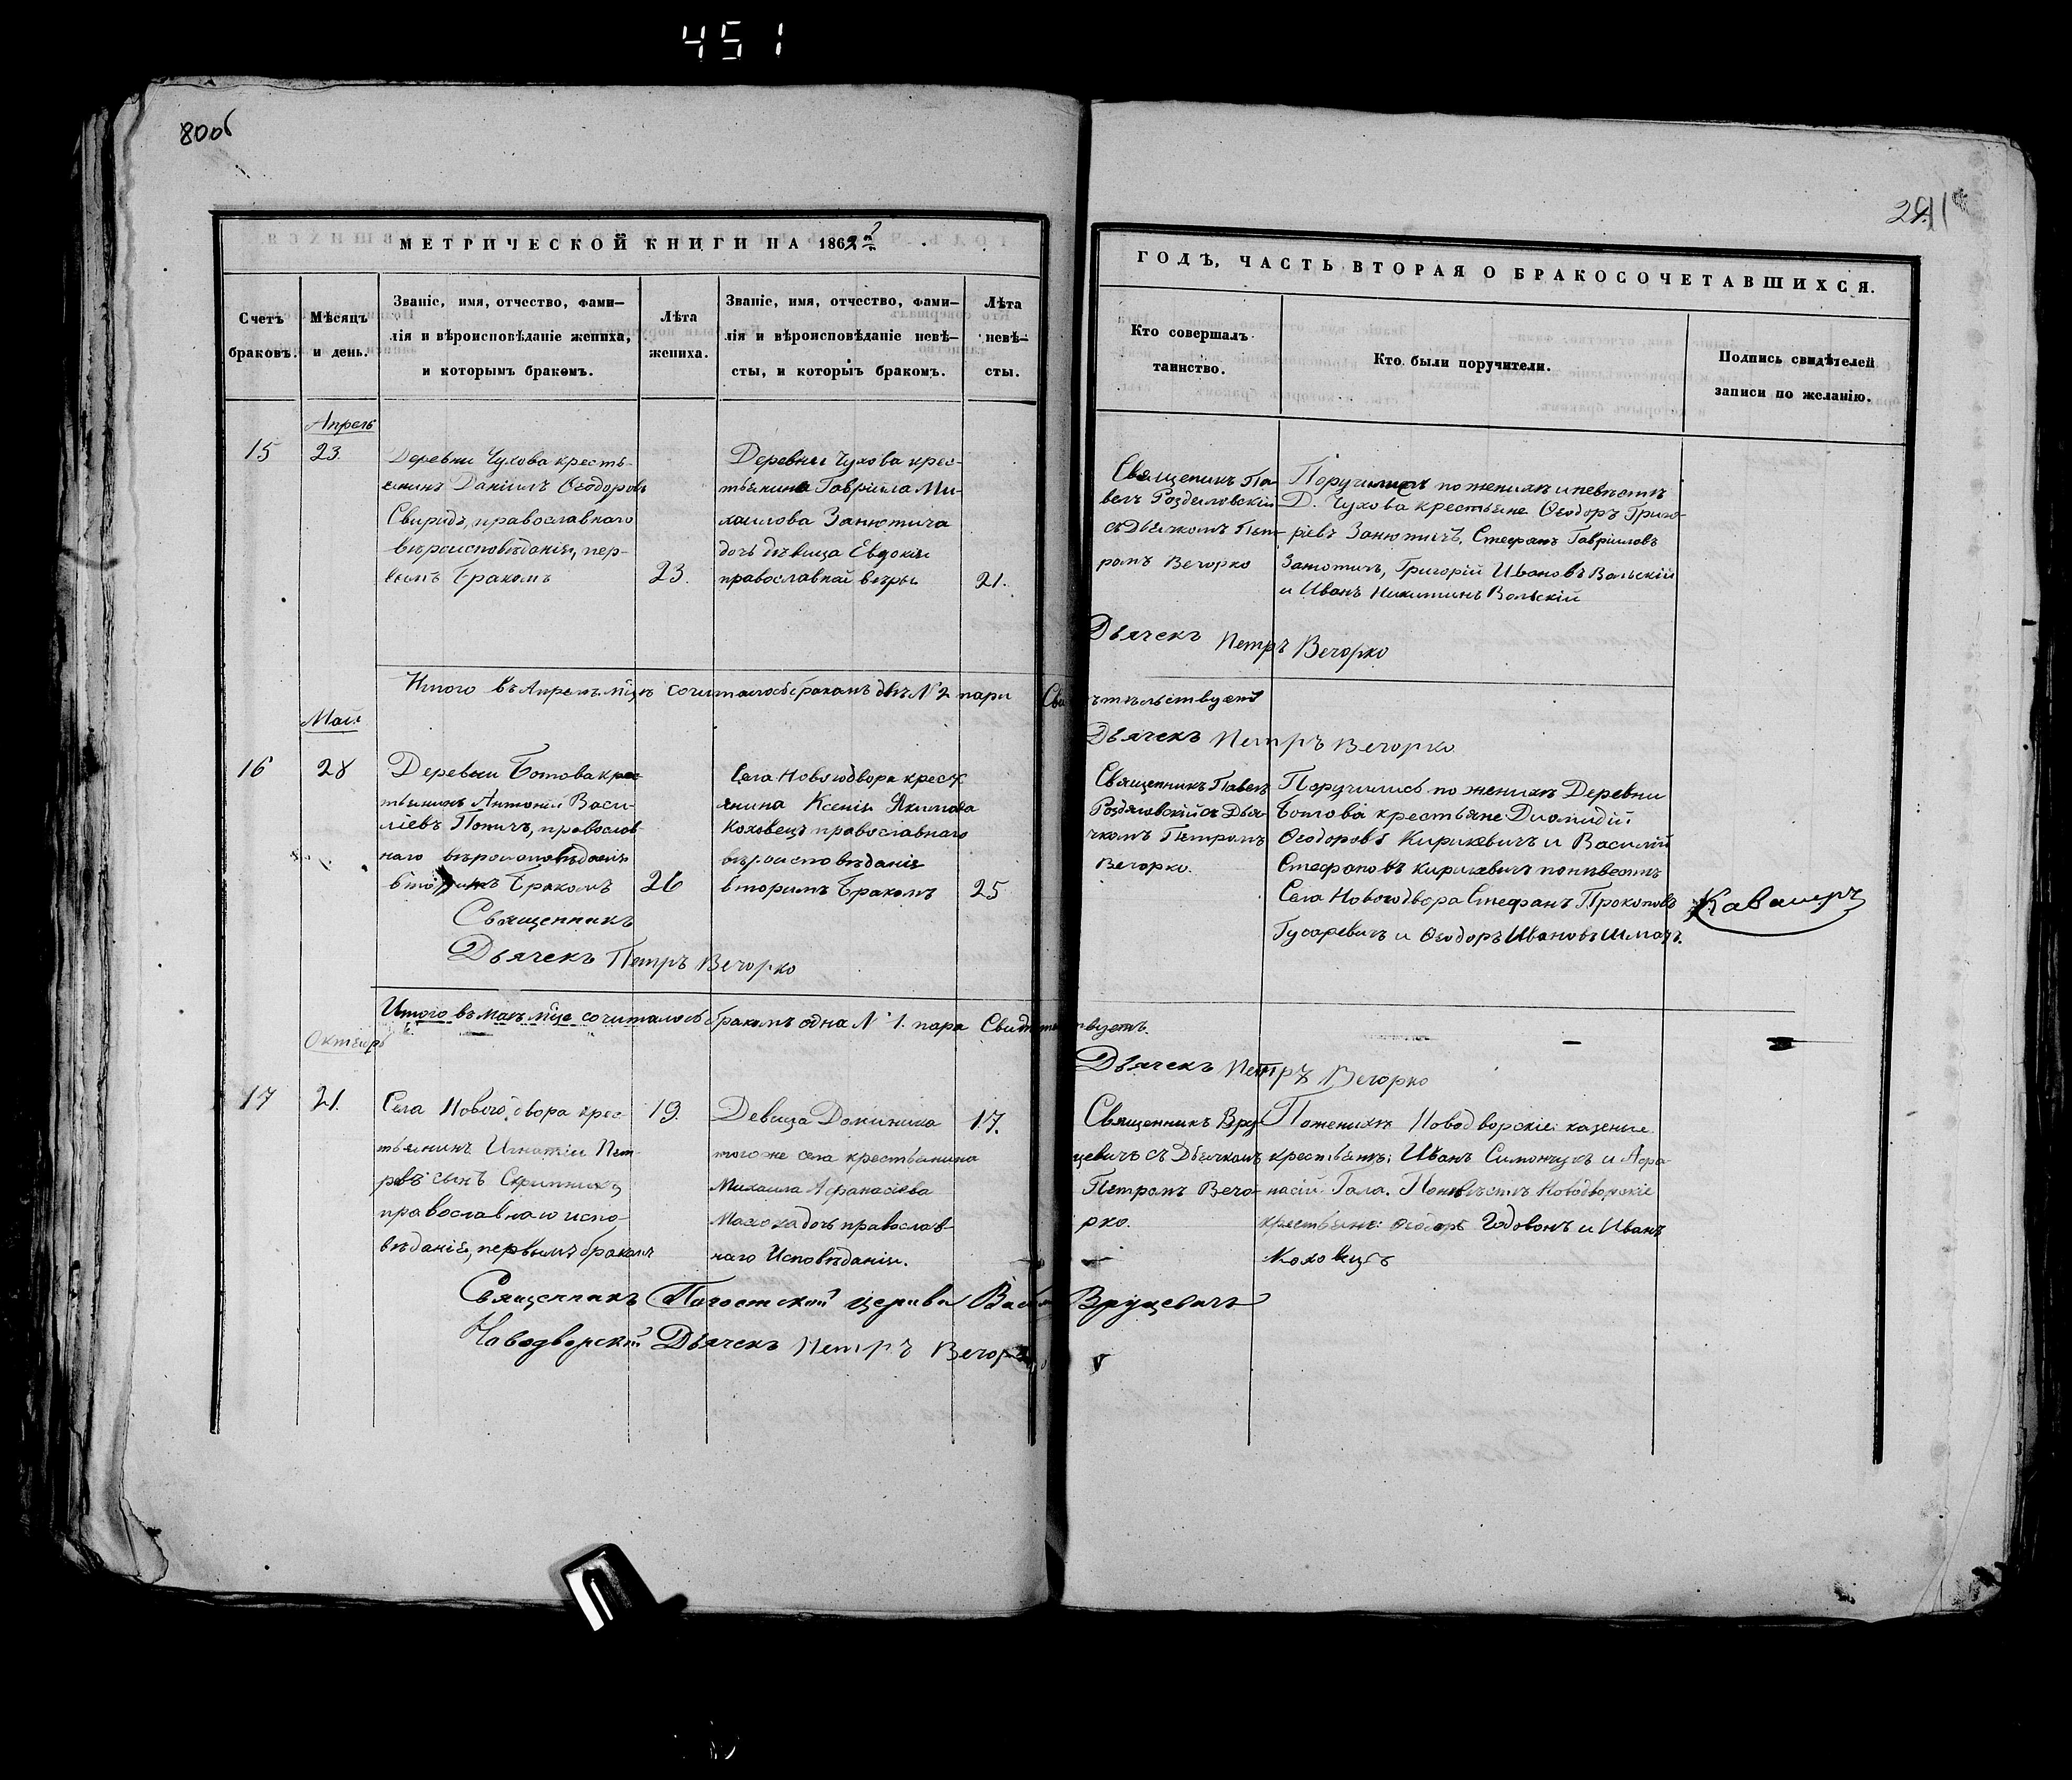 451
800б
МЕТРИЧЕСКОЙ КНИГИ НА 1862й
Счетъ браковъ.
Мѣсяцъ и день.
Званіе, имя, отчество, фами-
лія и вѣроисповѣданіе жениха,
и которымъ бракомъ.
Лѣта жениха.
Званіе, имя, отчество, фами-
лія и вѣроисповѣданіе невѣ-
сты, и которымъ бракомъ.
Лѣта невѣ-
сты.
ГОДЪ, ЧАСТЬ ВТОРАЯ О БРАКОСОЧЕТАВШИХСЯ.
Кто совершалъ
таинство.
Кто были поручители.
Подпись свидѣтелей
записи по желанію.
Апрель
15
23.
Деревни Чухова кресть-
янинъ Даніилъ Ѳеодоровъ
Свиридъ, православнаго
вѣроисповѣданія, пер-
вымъ бракомъ
23.
Деревни Чухова крес-
тьянина Гавріила Ми-
хаилова Занютича
дочь дѣвица Евдокія
православной вѣры
21.
Священикъ Па-
велъ Роздяловскій
съ Дьячкомъ Пет-
ромъ Вечорко
Поручились по женихѣ и невѣстѣ
Д. Чухова крестьяне Ѳеодоръ Григо-
ріевъ Занютичъ, Стефанъ Гавріиловъ
Занютичъ, Григорій Ивановъ Вольскій
и Иванъ Никитинъ Вольскій
Дьячекъ Петръ Вечорко
Итого въ Апрелѣ мцѣ сочиталось бракомъ двѣ № 2 пари Свидѣтельствуетъ
Дьячекъ Петръ Вечорко
Май
16
28
Деревни Ботова крес-
тьянинъ Антоній Васи-
ліевъ Попичъ, православ-
наго вѣроисповѣданія
вторимъ бракомъ
26
Села Новогодвора крест
янина Ксенія Якимова
Коховецъ православнаго
вѣроисповѣданія
вторимъ бракомъ
25
Священникъ Павелъ
Роздяловскій съ Дья-
чкомъ Петромъ
Вечорко.
Поручились по женихѣ Деревни
Ботова крестьяне Диомидій
Ѳеодоровъ Кирикевичъ и Василій
Стефановъ Кирикевичъ по невѣстѣ
Села Новогодвора Стефанъ Прокоповъ
Гусаревичъ и Ѳеодоръ Ивановъ Шмать.
Кавалеръ
Священникъ
Дьячекъ Петръ Вечорко
Итого въ маѣ мѣце сочиталось бракомъ одна № 1. пара Свидѣтельствуетъ.
Дьячекъ Петръ Вечорко
Октябрь
17
21.
Села Новогодвора крес-
тьянинъ Игнатій Пет-
ровъ сынъ Скрипникъ
православнаго испо-
вѣданія, первымъ бракомъ
19.
Девица Доминика
того же села крестьянина
Михаила Афанасіева
дочь православ-
наго Исповѣданія.
17.
Священникъ Вру-
цевичъ съ Дьячкомъ
Петромъ Вечо-
рко.
По женихѣ Новодворскіе казеные
крестьянѣ: Иванъ Симончукъ и Афа-
насій Гала. По невѣстѣ Новодворскіе
крестьянѣ: Ѳеодоръ Годовонъ и Иванъ
Коховецъ
Священникъ Погостской церкви Врүцевичъ
Новодворскій Дьячекъ Петръ Вечорко